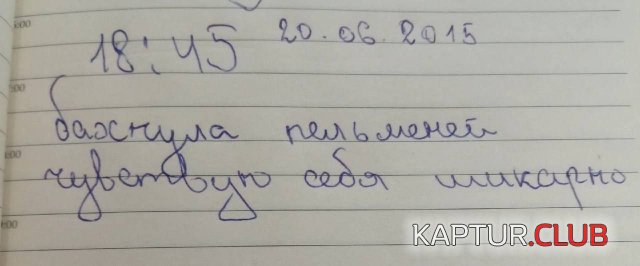 18:45 20.06.2015
бахнула пельменей
чувствую себя шикарно
KAPTUR.CLUB